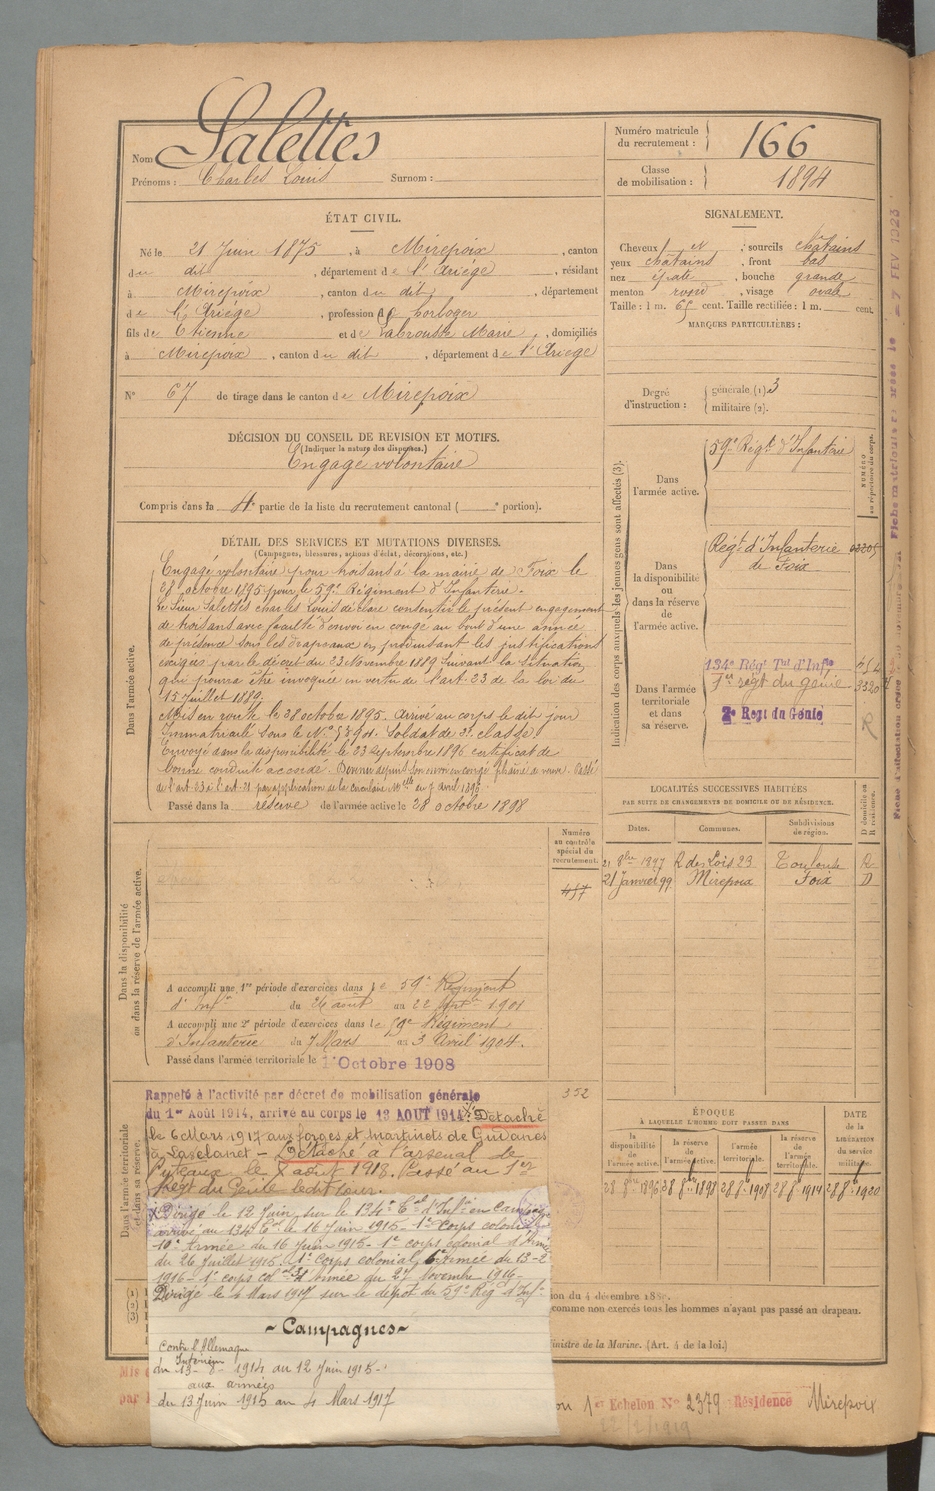 Nom Salettes
Prénoms : Charles Louis Surnom :
Numéro matricule du recrutement : 166
Classe de mobilisation : 1894
ÉTAT CIVIL.
Né le 21 Juin 1875, à Mirepoix, canton
du dit, département de l'Ariège, résidant
à Mirepoix, canton du dit, département
de l'Ariège, profession de horloger
fils de Etienne et de Labrousse Marie, domiciliés
à Mirepoix, canton du dit, département de l'Ariège
N° 67 du tirage dans le canton de Mirepoix
SIGNALEMENT.
Cheveux et sourcils châtains
yeux chatains, front bas
nez épaté, bouche grande
menton rond, visage ovale
Taille : 1 m. 65 cent. Taille rectifiée : 1 m. cent.
MARQUES PARTICULIÈRES :
Degré d'instruction : générale (1) 3
militaire (2).
DÉCISION DU CONSEIL DE REVISION ET MOTIFS.
(Indiquer la nature des dispenses.)
Engagé volontaire
Compris dans la 4e partie de la liste du recrutement cantonal ( e portion).
DÉTAIL DES SERVICES ET MUTATIONS DIVERSES.
(Campagnes, blessures, actions d'éclat, décorations, etc.)
Dans l'armée active.
Engagé volontaire pour trois ans à la mairie de Foix le
28 octobre 1895 pour le 59e Régiment d'Infanterie.
Le Sieur Salettes Charles Louis déclare consentir le présent engagement
de trois ans avec faculté d'envoi en congé au bout d'une année
de présence sous les drapeaux en produisant les justifications
exigées par le décret du 23 Novembre 1889 suivant la situation
qui pourra être invoquée en vertu de l'art. 23 de la loi du
15 Juillet 1889.
Mis en route le 28 octobre 1895. Arrivé au corps le dit jour
Immatriculé sous le N° Soldat de 2e classe
Envoyé dans la disponibilité le 23 septembre 1896 certificat de
bonne conduite accordé.
de l'art. 23 à l'art. 21 par application de la circulaire
Passé dans la réserve de l'armée active le 28 octobre 1898
Indication des corps auxquels les jeunes gens sont affectés (3).
Dans l'armée active. 59e Régt d'Infanterie
NUMÉRO au répertoire du corps.
Dans la disponibilité ou dans la réserve de l'armée active. Régt d'Infanterie de Foix
Dans l'armée territoriale et dans sa réserve.
134e Régt Tal d'Infie
1er régt du génie
2e Regt du Génie
LOCALITÉS SUCCESSIVES HABITÉES
PAR SUITE DE CHANGEMENTS DE DOMICILE OU DE RÉSIDENCE.
D domicile ou R résidence.
Dates. Communes. Subdivisions de région.
21 8bre 1897 R des Lois 23 Toulouse R
21 Janvier 99 Mirepoix Foix D
Dans la disponibilité ou dans la réserve de l'armée active.
Numéro au contrôle spécial du recrutement.
457
A accompli une 1re période d'exercices dans le 59e Régiment
d'Infie du 26 août au 22 Sptbre 1901
A accompli une 2e période d'exercices dans le 59e Régiment
d'Infanterie du 7 Mars au 3 Avril 1904.
Passé dans l'armée territoriale le 1 Octobre 1908
352
Dans l'armée territoriale et dans sa réserve.
Rappelé à l'activité par décret de mobilisation générale
du 1er Août 1914, arrivé au corps le 13 AOUT 1914. Détaché
le 6 Mars 1917 aux forges et Martinets de Guilanes
à Laselanet - Détaché à l'arsenal de
Puteaux le août 1918. Passé au 1er
Régt du Génie le dit jour.
ÉPOQUE
A LAQUELLE L'HOMME DOIT PASSER DANS
DATE DE LA LIBÉRATION DU SERVICE militaire.
la disponibilité de l'armée active. la réserve de l'armée active. l'armée territoriale. la réserve de l'armée territoriale.
28 8bre 1896 28 8bre 1898 28 8bre 1908 28 8bre 1914 28 8bre 1920
Dirigé le 12 Juin sur le 134e Tal d'Infie en campagne
arrivé au 134 le 16 Juin 1915 - 1er corps colonial
10e Armée du 16 Juin 1915 - 1e corps colonial d'Armée
du 26 Juillet 1915 - 1e corps colonial 6e armée du 13-2
1916 - 1e corps col 3e armée du 27 Novembre 1916 -
Dirigé le 6 Mars 1917 sur le dépôt du 59e Régt d'Infie
~ Campagnes ~
Contre l'Allemagne
Intérieur
du 13-8-1914 au 12 Juin 1915 -
aux armées
du 13 Juin 1915 au 4 Mars 1917
ion du 4 décembre
comme non exercés tous les hommes n'ayant pas passé au drapeau.
inistre de la Marine. (Art. 4 de la loi.)
1er Echelon N° 2379 Résidence Mirepoix
22/2/1919